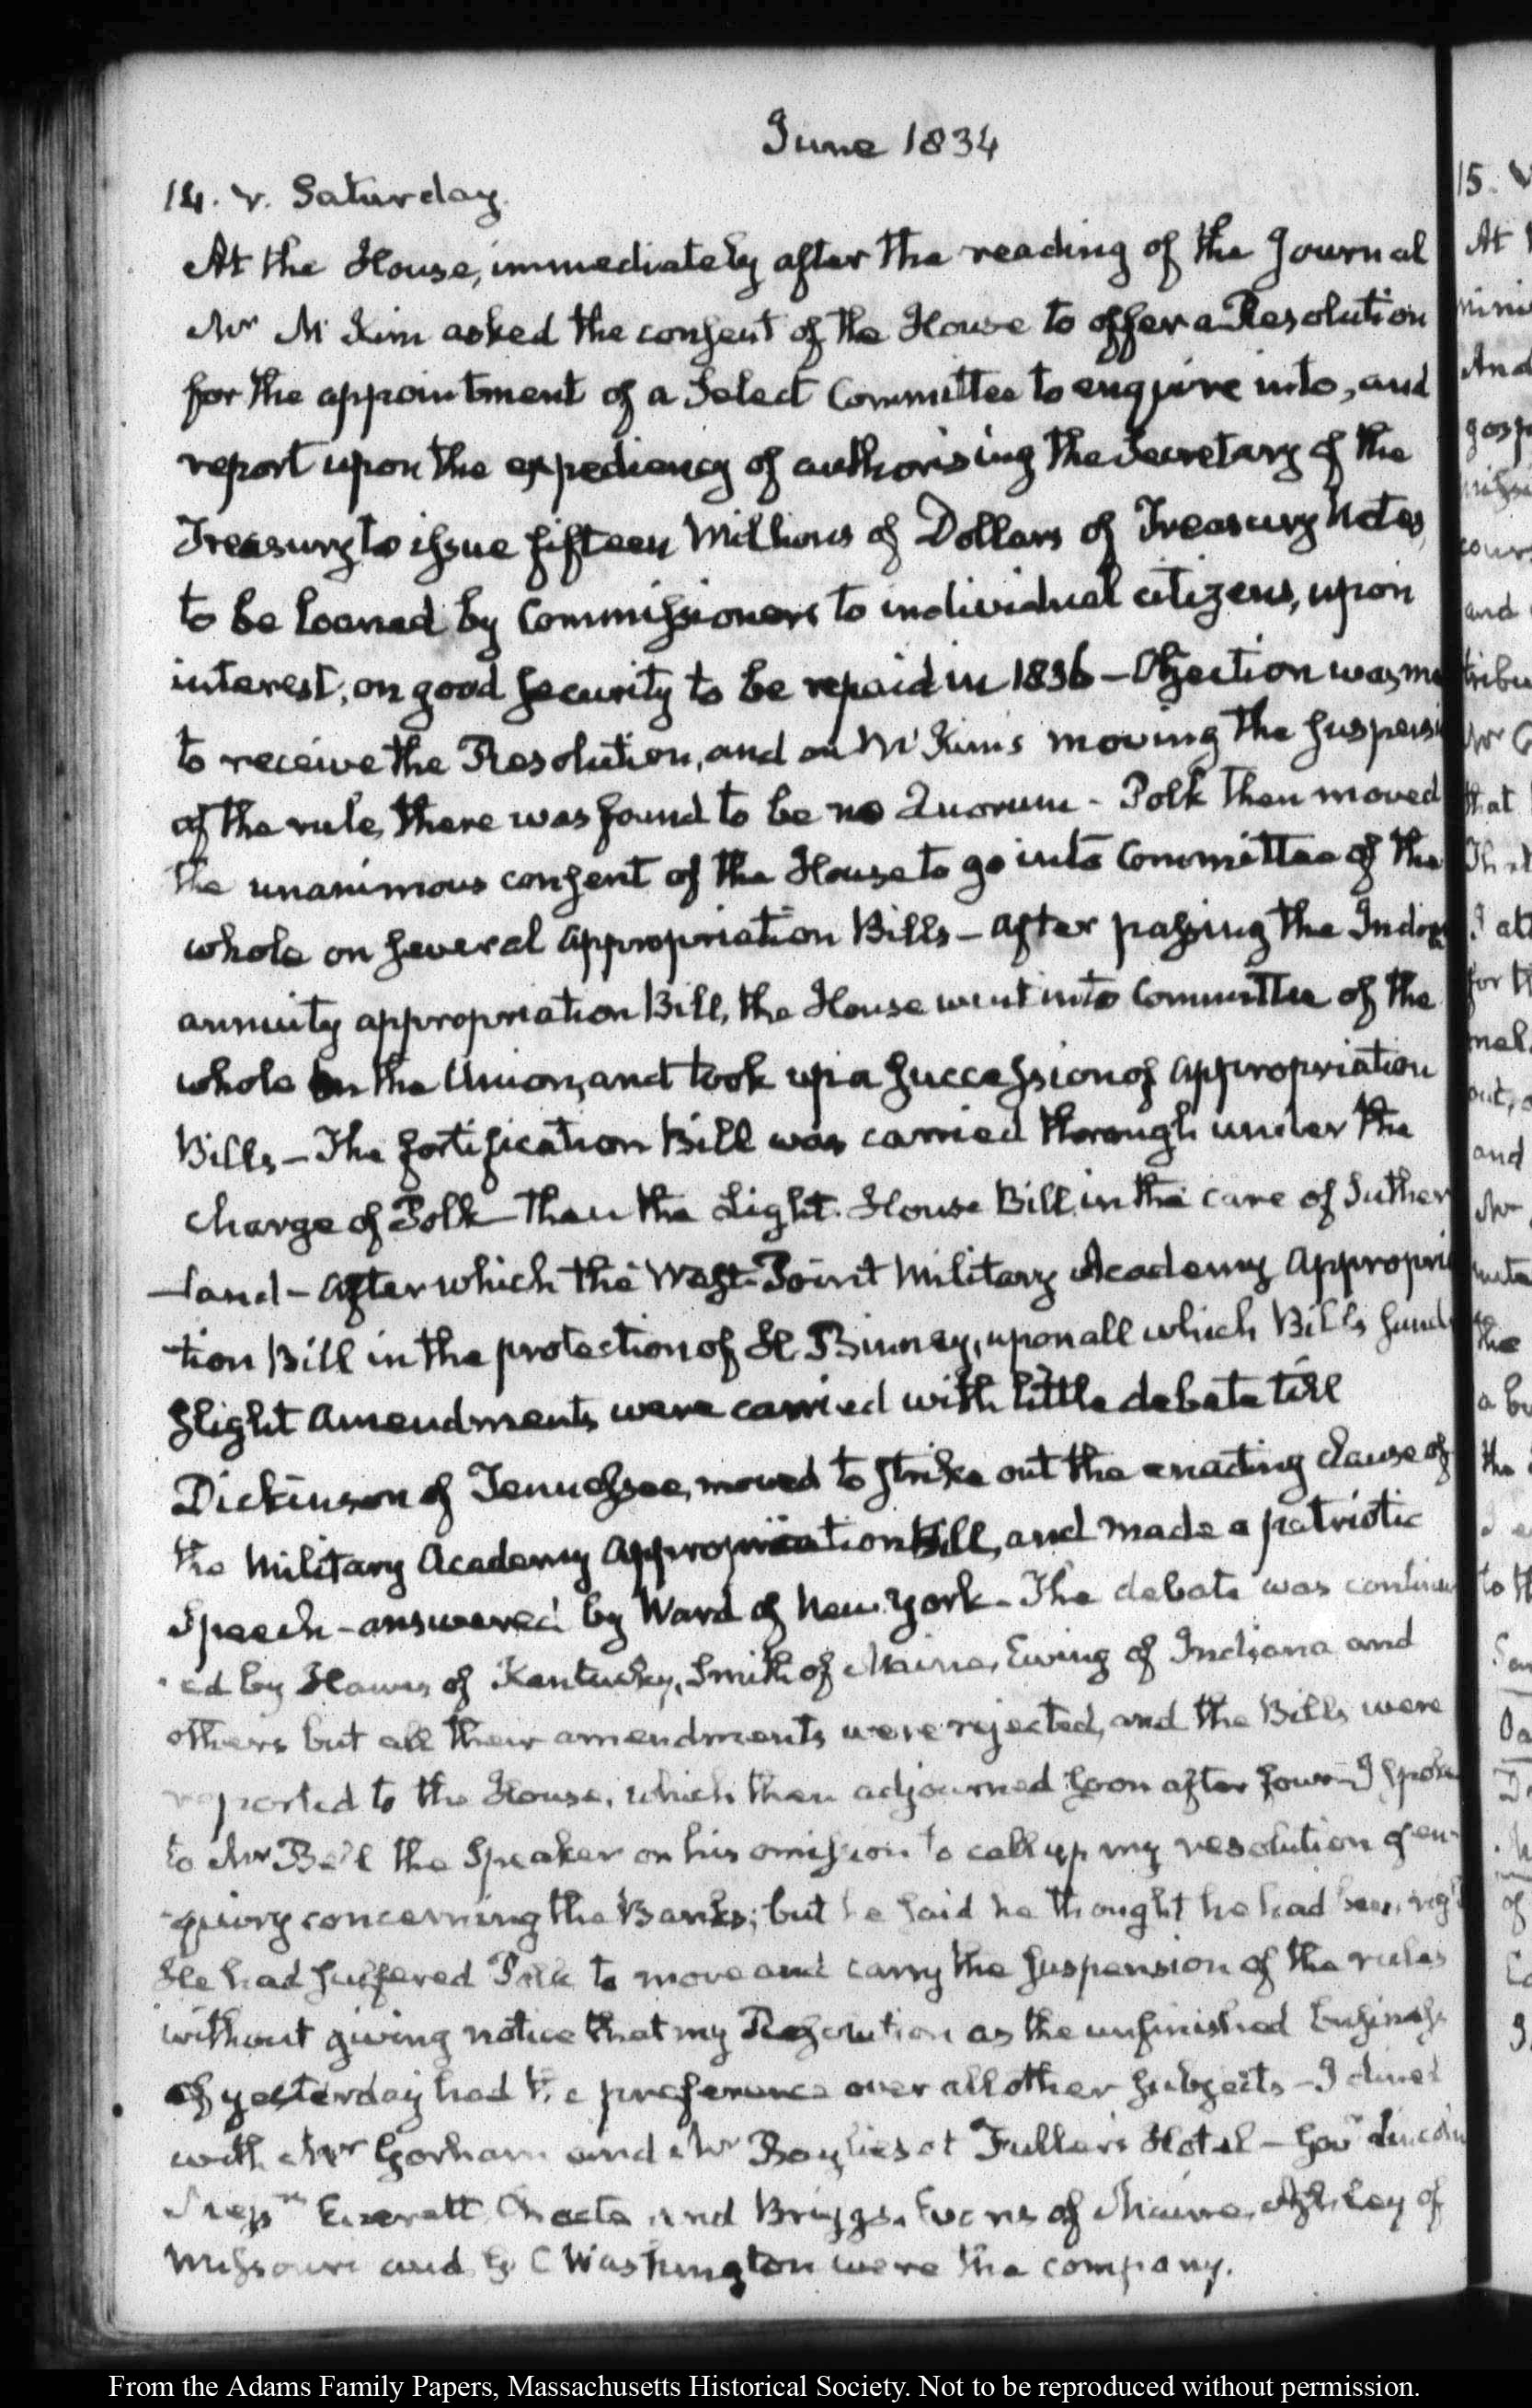 June 1834
14. V. Saturday.
At the House, immediately after the reading of the Journal
Mr McKim asked the consent of the House to offer a Resolution
for the appointment of a Select Committee to enquire into, and
report upon the expediency of authorising the Secretary of the
Treasury to issue fifteen Millions of Dollars of Treasury Notes,
to be loaned by Commissioners to individual citizens, upon
interest, on good security to be repaid in 1836 — Objection was ma
to receive the Resolution, and on McKim's moving the suspensi
of the rule, there was found to be no Quorum - Polk then moved
the unanimous consent of the House to go into Committee of the
whole on several appropriation Bills — After passing the Indian
annuity appropriation Bill, the House went into Committee of the
whole on the Union, and took up a succession of appropriation
Bills — The fortification Bill was carried through under the
charge of Polk — Then the Light-House Bill, in the care of Suther
-land — After which the West-Point Military Academy Appropria
-tion Bill in the protection of H. Binney, upon all which Bills sund
slight amendments were carried with little debate till
Dickinson of Tennessee, moved to strike out the enacting clause of
the Military Academy appropriation Bill, and made a patriotic
Speech - answered by Ward of New-York - The debate was continu
-ed by Hawes of Kentucky, Smith of Maine, Ewing of Indiana and
others but all their amendments were rejected, and the Bills were
reported to the House, which then adjourned soon after four — I spoke
to Mr Bell the Speaker on his omission to call up my resolution of en-
-quiry concerning the Banks; but he said he thought he had been right
He had suffered Polk to move and carry the suspension of the rules
without giving notice that my Resolution as the unfinished business
of yesterday had the preference over all other subjects — I dined
with Mr Gorham and Mr Baylies at Fuller's Hotel — Govr Lincoln
Everett, Choate and Briggs, Evans of Maine, Ashley of
Missouri and G. C Washington were the company.
15. V
From the Adams Family Papers, Massachusetts Historical Society. Not to be reproduced without permission.